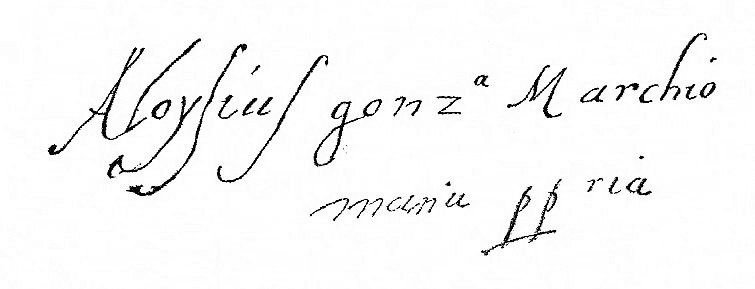 Aloysius gonzª Marchio
manu ppria